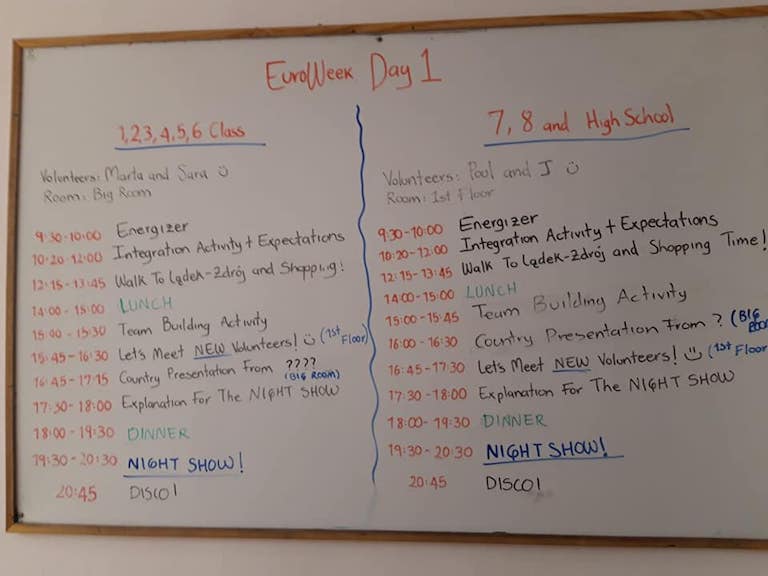 EuroWeek Day 1
1,23,4,5,6 Class
Volunteers: Marta and Sara
Room: Big Room
9:30-10:00 Energizer
10:20-12:00 Integration Activity + Expectations
12:15-13:45 Walk To Lądek-Zdrój and Shopping!
14:00-15:00 LUNCH
15:00-15:30 Team Building Activity
15:45-16:30 Let's Meet NEW Volunteers! (1st Floor)
16:45-17:15 Country Presentation From ????
(BIG Room)
17:30-18:00 Explanation For The NIGHT SHOW
18:00-19:30 DINNER
19:30-20:30 NIGHT SHOW!
20:45 DISCO!
7, 8 and High School
Volunteers: Poul and J
Room: 1st Floor
9:30-10:00 Energizer
10:20-12:00 Integration Activity + Expectations
12:15-13:45 Walk To Lądek-Zdrój and Shopping Time!
14:00-15:00 LUNCH
15:00-15:45 Team Building Activity
16:00-16:30 Country Presentation From ? (BIG
16:45-17:30 Let's Meet NEW Volunteers! (1st Floor
17:30-18:00 Explanation For The NIGHT SHOW
18:00-19:30 DINNER
19:30-20:30 NIGHT SHOW!
20:45 DISCO!